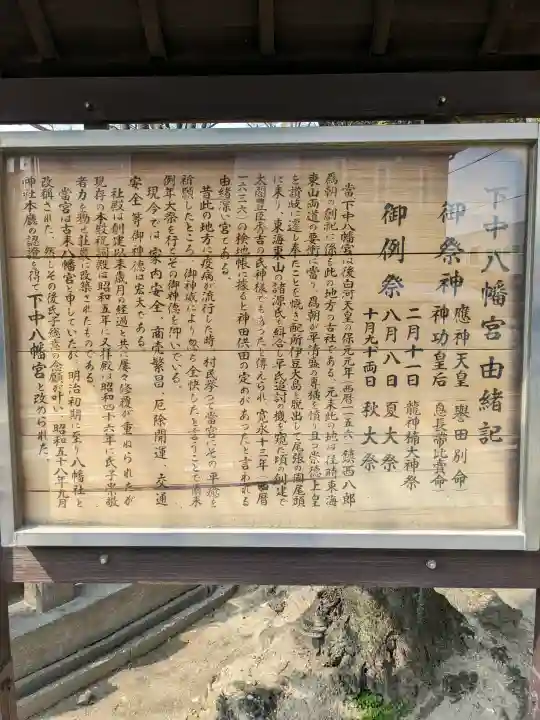 下中八幡宮由緒記
御祭神 應神天皇 譽田別命
神功皇后 息長帯比賣命
御例祭 二月十一日 龍神楠大神祭
八月八日 夏大祭
十月九十両日 秋大祭
當下中八幡宮は後白河天皇の保元元年(西暦一一五六)鎮西八郎
為朝の創祀に係る此の地方の古社である。元来此の地は往時東海
東山両道の要衝に當り、為朝が平清盛の専横を憤り且つ崇徳上皇
を讃岐に遷し奉たことを慨き配所伊豆大島を脱出して尾張の国尾頭
に来り、東海東山の諸源氏を糾合し平氏追討の機を窺た頃の創建で
太閤豊臣秀吉の氏神様でもあったと傳えられ寛永十三年(西暦
一六三六)の検地帳に據ると神田供田の定めがあったと言われる
由緒深い宮である。
昔此の地方に疫病が流行した時、村民挙って當宮にその平癒を
祈願したところ、御神威により悉く全快したと言うことで爾来
例年大祭を行いその御神徳を仰いでいる。
現今では、家内安全、商売繁昌、厄除開運、交通
安全等御神徳は宏大である。
社殿は創建以来歳月の経過と共に屡々修覆が重ねられたが
現存の本殿祝詞殿は昭和五年に又拝殿は昭和四十六年に氏子崇敬
者力を協せ荘厳に改築されたものである。
當宮は古来八幡宮と申していたが、明治初期に至り八幡社と
改稱された。然しその後氏子残意の念願が叶い、昭和五十八年九月
神社本廳の認證を得て下中八幡宮と改められた。